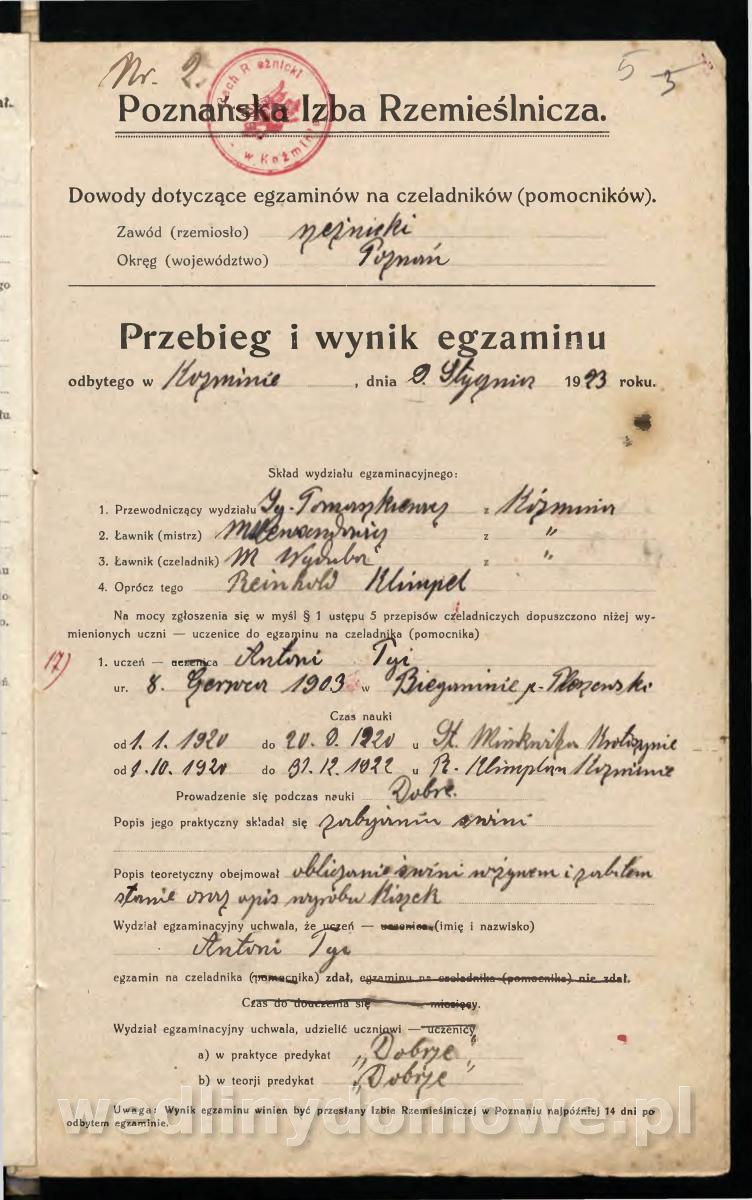 Nr. 2.
Cech Rzeźnicki w Koźminie
5 5
Poznańska Izba Rzemieślnicza.
Dowody dotyczące egzaminów na czeladników (pomocników).
Zawód (rzemiosło) rzeźnicki
Okręg (województwo) Poznań
Przebieg i wynik egzaminu
odbytego w Kozminie, dnia 9. Stycznia 1923 roku.
Skład wydziału egzaminacyjnego:
1. Przewodniczący wydziału Ig. Tomaszkiewicz z Koźmina
2. Ławnik (mistrz) M z "
3. Ławnik (czeladnik) M z "
4. Oprócz tego Reinhold Klimpel
Na mocy zgłoszenia się w myśl § 1 ustępu 5 przepisów czeladniczych dopuszczono niżej wy-
mienionych uczni — uczenice do egzaminu na czeladnika (pomocnika)
17)
1. uczeń — uczenica Antoni Tyi
ur. 8. Czerwca 1903 w Bieganinie p. Pleszewski
Czas nauki
od 1. 1. 1920 do 20. 9. 1920 u St.
od 1. 10. 1920 do 31. 12. 1922 u R. Kozminie
Prowadzenie się podczas nauki Dobre.
Popis jego praktyczny składał się zabijaniu swini
Popis teoretyczny obejmował obliczanie swini w żywem i zabitem
stanie oraz opis wyrobu Kiszek
Wydział egzaminacyjny uchwala, że uczeń — uczenica (imię i nazwisko)
Antoni Tyi
egzamin na czeladnika (pomocnika) zdał, egzaminu na czeladnika (pomocnika) nie zdał.
Czas do douczenia się miesięcy.
Wydział egzaminacyjny uchwala, udzielić uczniowi — uczenicy
a) w praktyce predykat „Dobrze"
b) w teorji predykat „Dobrze"
Uwaga: Wynik egzaminu winien być przesłany Izbie Rzemieślniczej w Poznaniu najpóźniej 14 dni po
odbytem egzaminie.
wedlinydomowe.pl